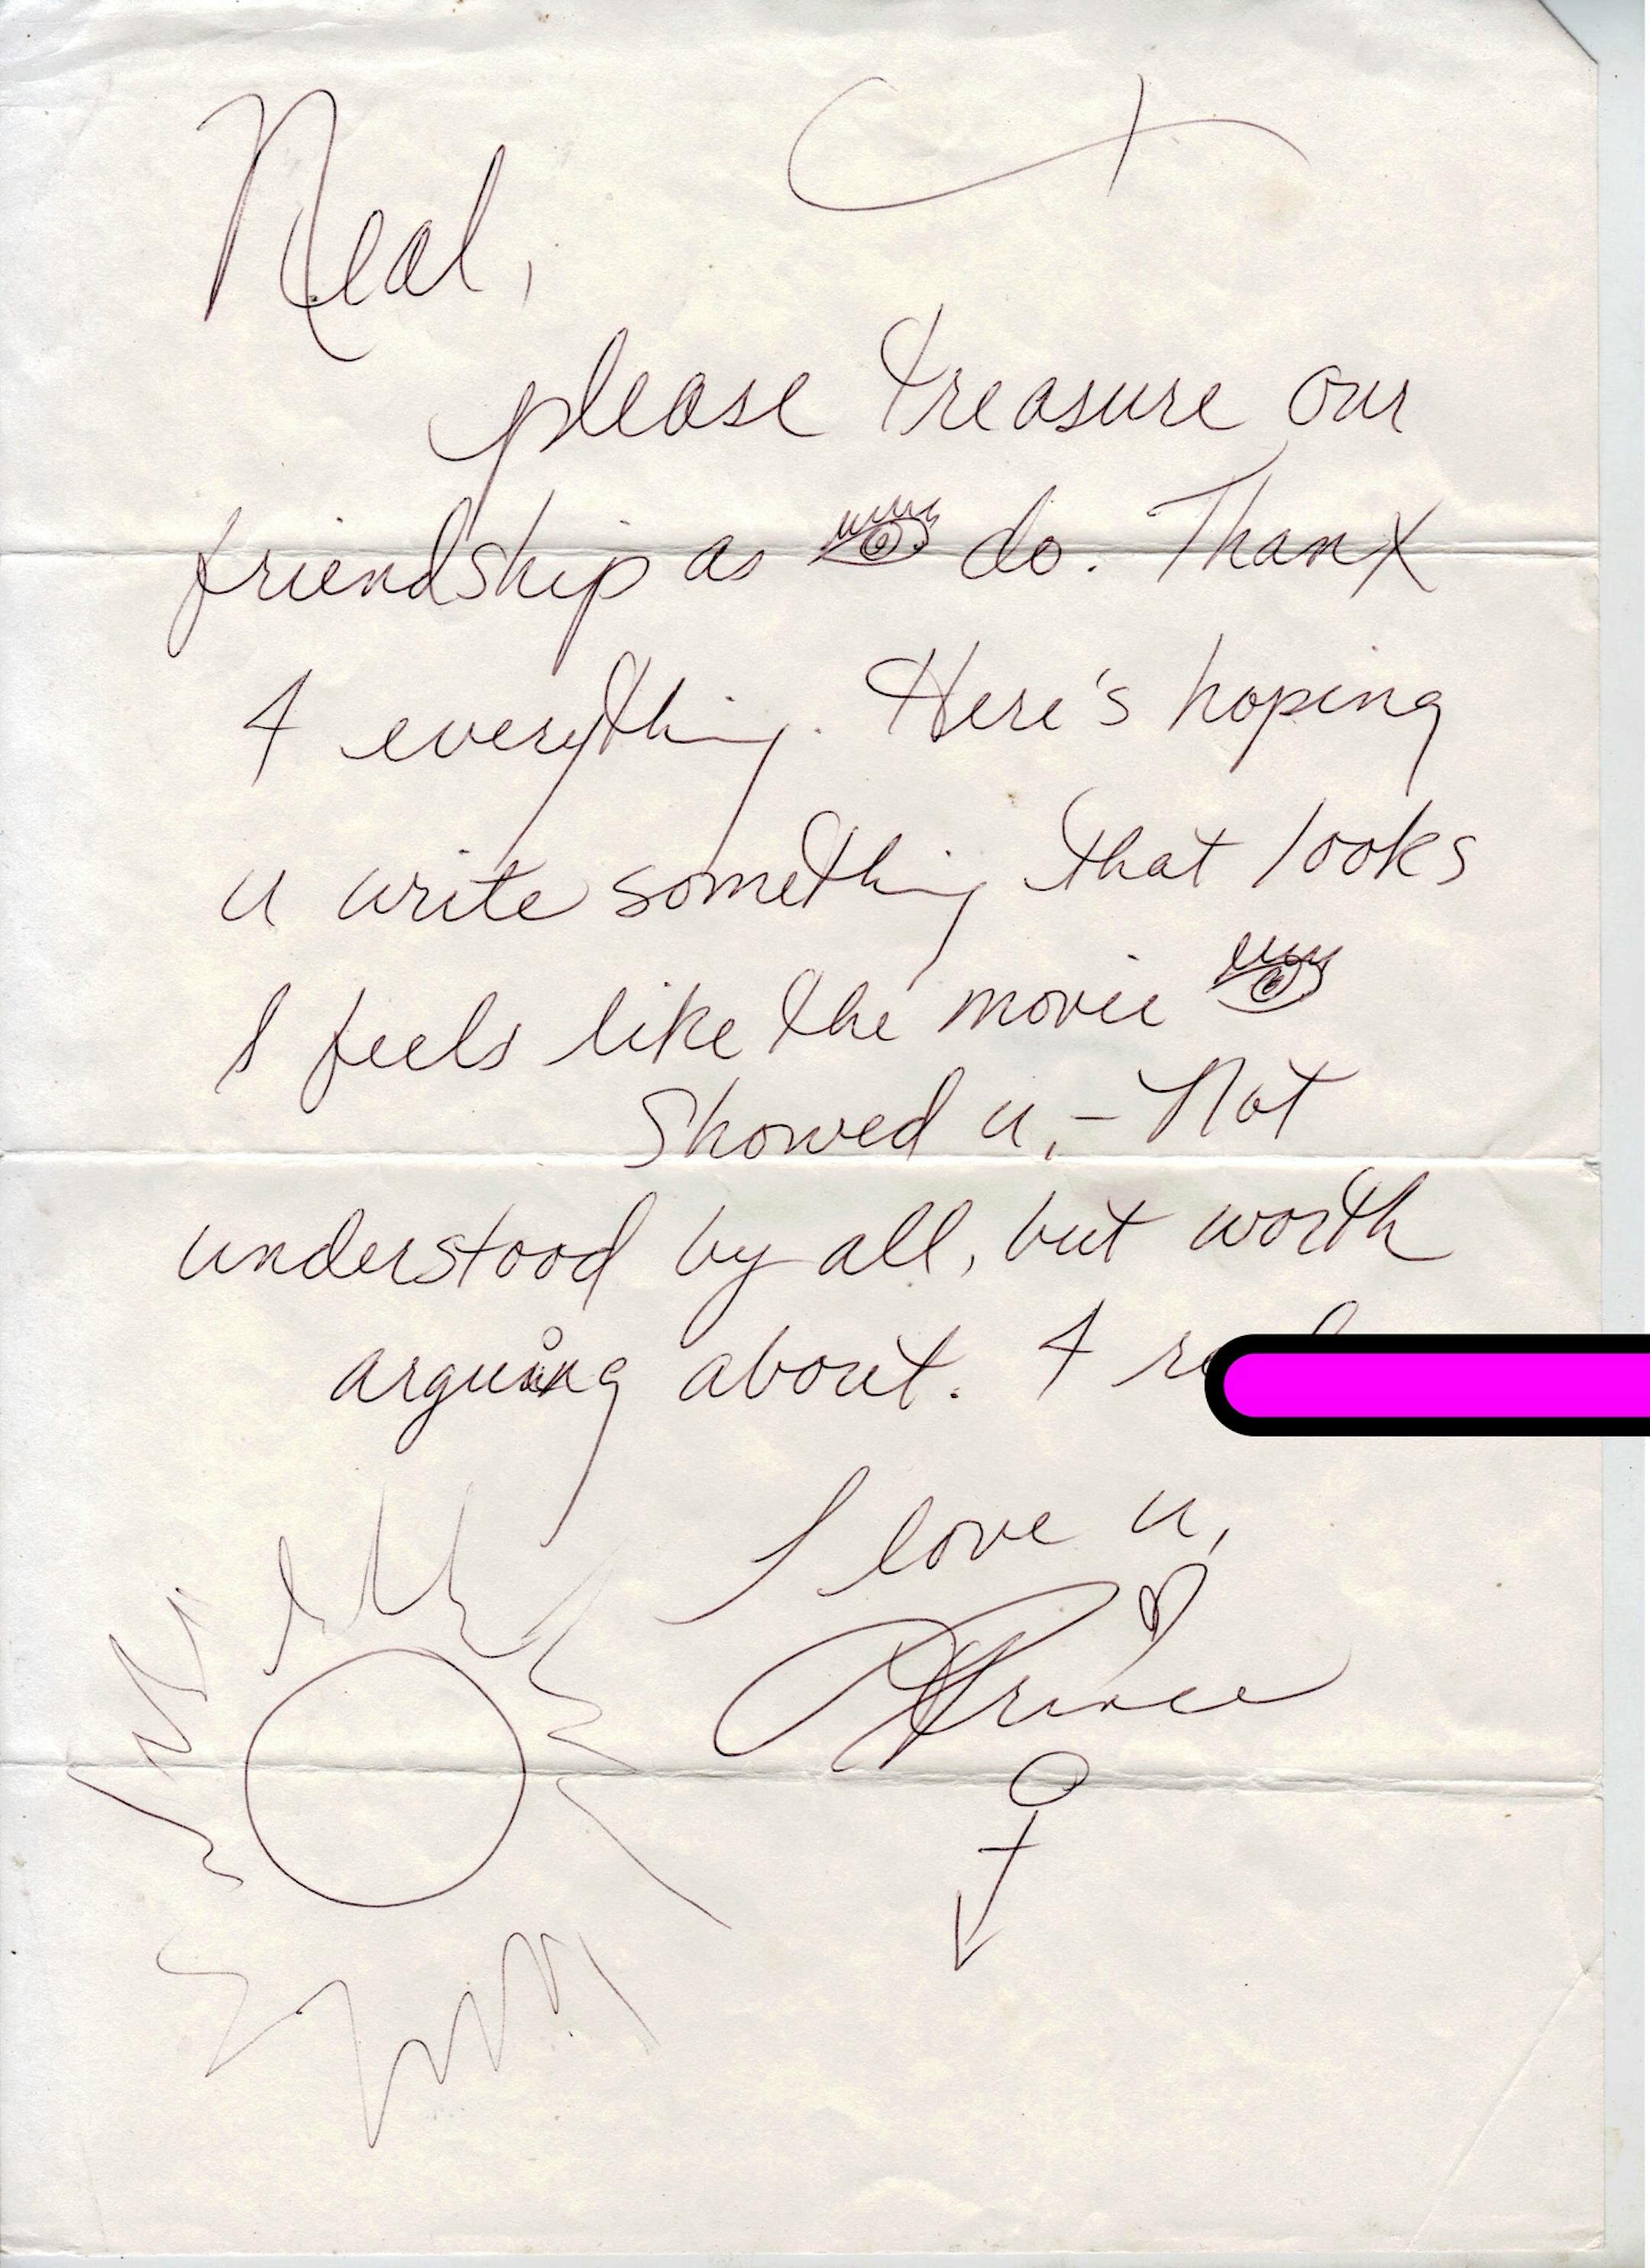 Neal,
please treasure our
friendship as do. Thanx
4 everything. Here's hoping
u write something that looks
& feels like the movie
Showed u, - Not
understood by all, but worth
arguing about. 4
I love u,
Prince